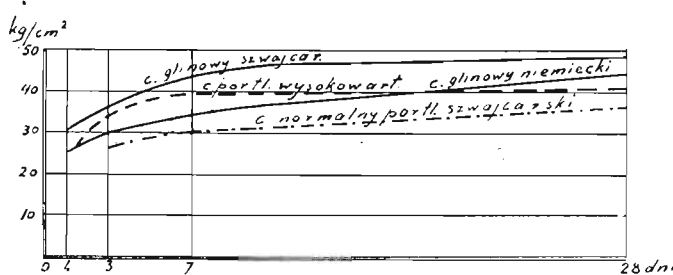 kg/cm²
50
c. glinowy szwajcar.
c. portl. wysokowart.
c. glinowy niemiecki
40
c. normalny portl. szwajcarski
30
20
10
0 1 3 7 28 dni